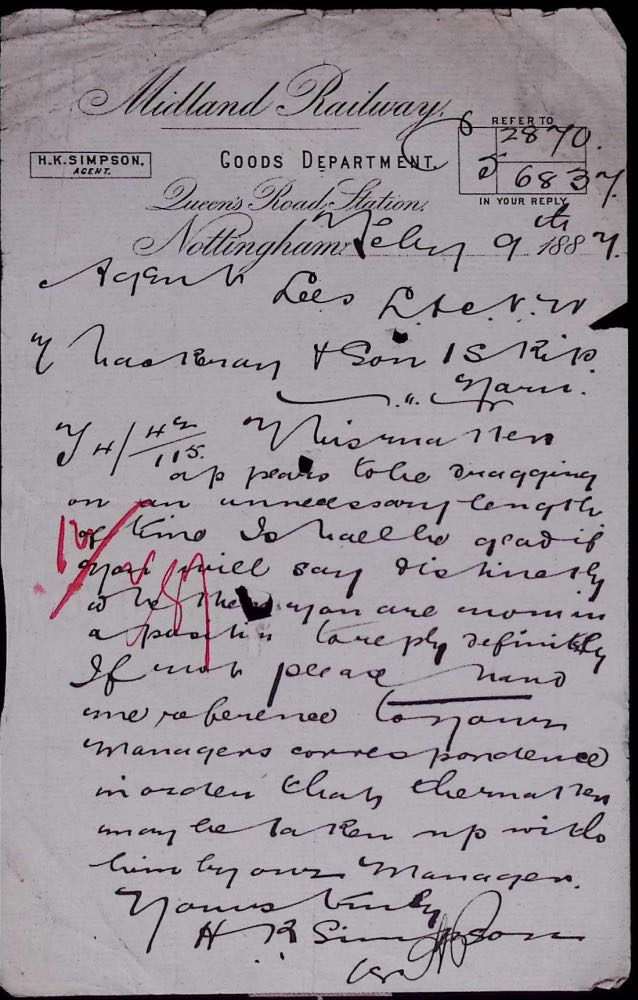 Midland Railway.
REFER TO
6
2870.
5
6837.
IN YOUR REPLY
H.K.SIMPSON,
AGENT.
GOODS DEPARTMENT.
Queen's Road Station,
Nottingham Feby 9th 1887.
Agent
Lees L & N. W
& Son 1 Skip
" Yarn.
4/ 115. This matter
appears to be dragging
on an unnecessary length
of time I shall be glad if
you will say distinctly
whether you are now in
a position to reply definitely
If not please hand
me reference to your
Managers correspondence
in order that the matter
may be taken up with
him by our Manager.
Yours truly
H K Simpson